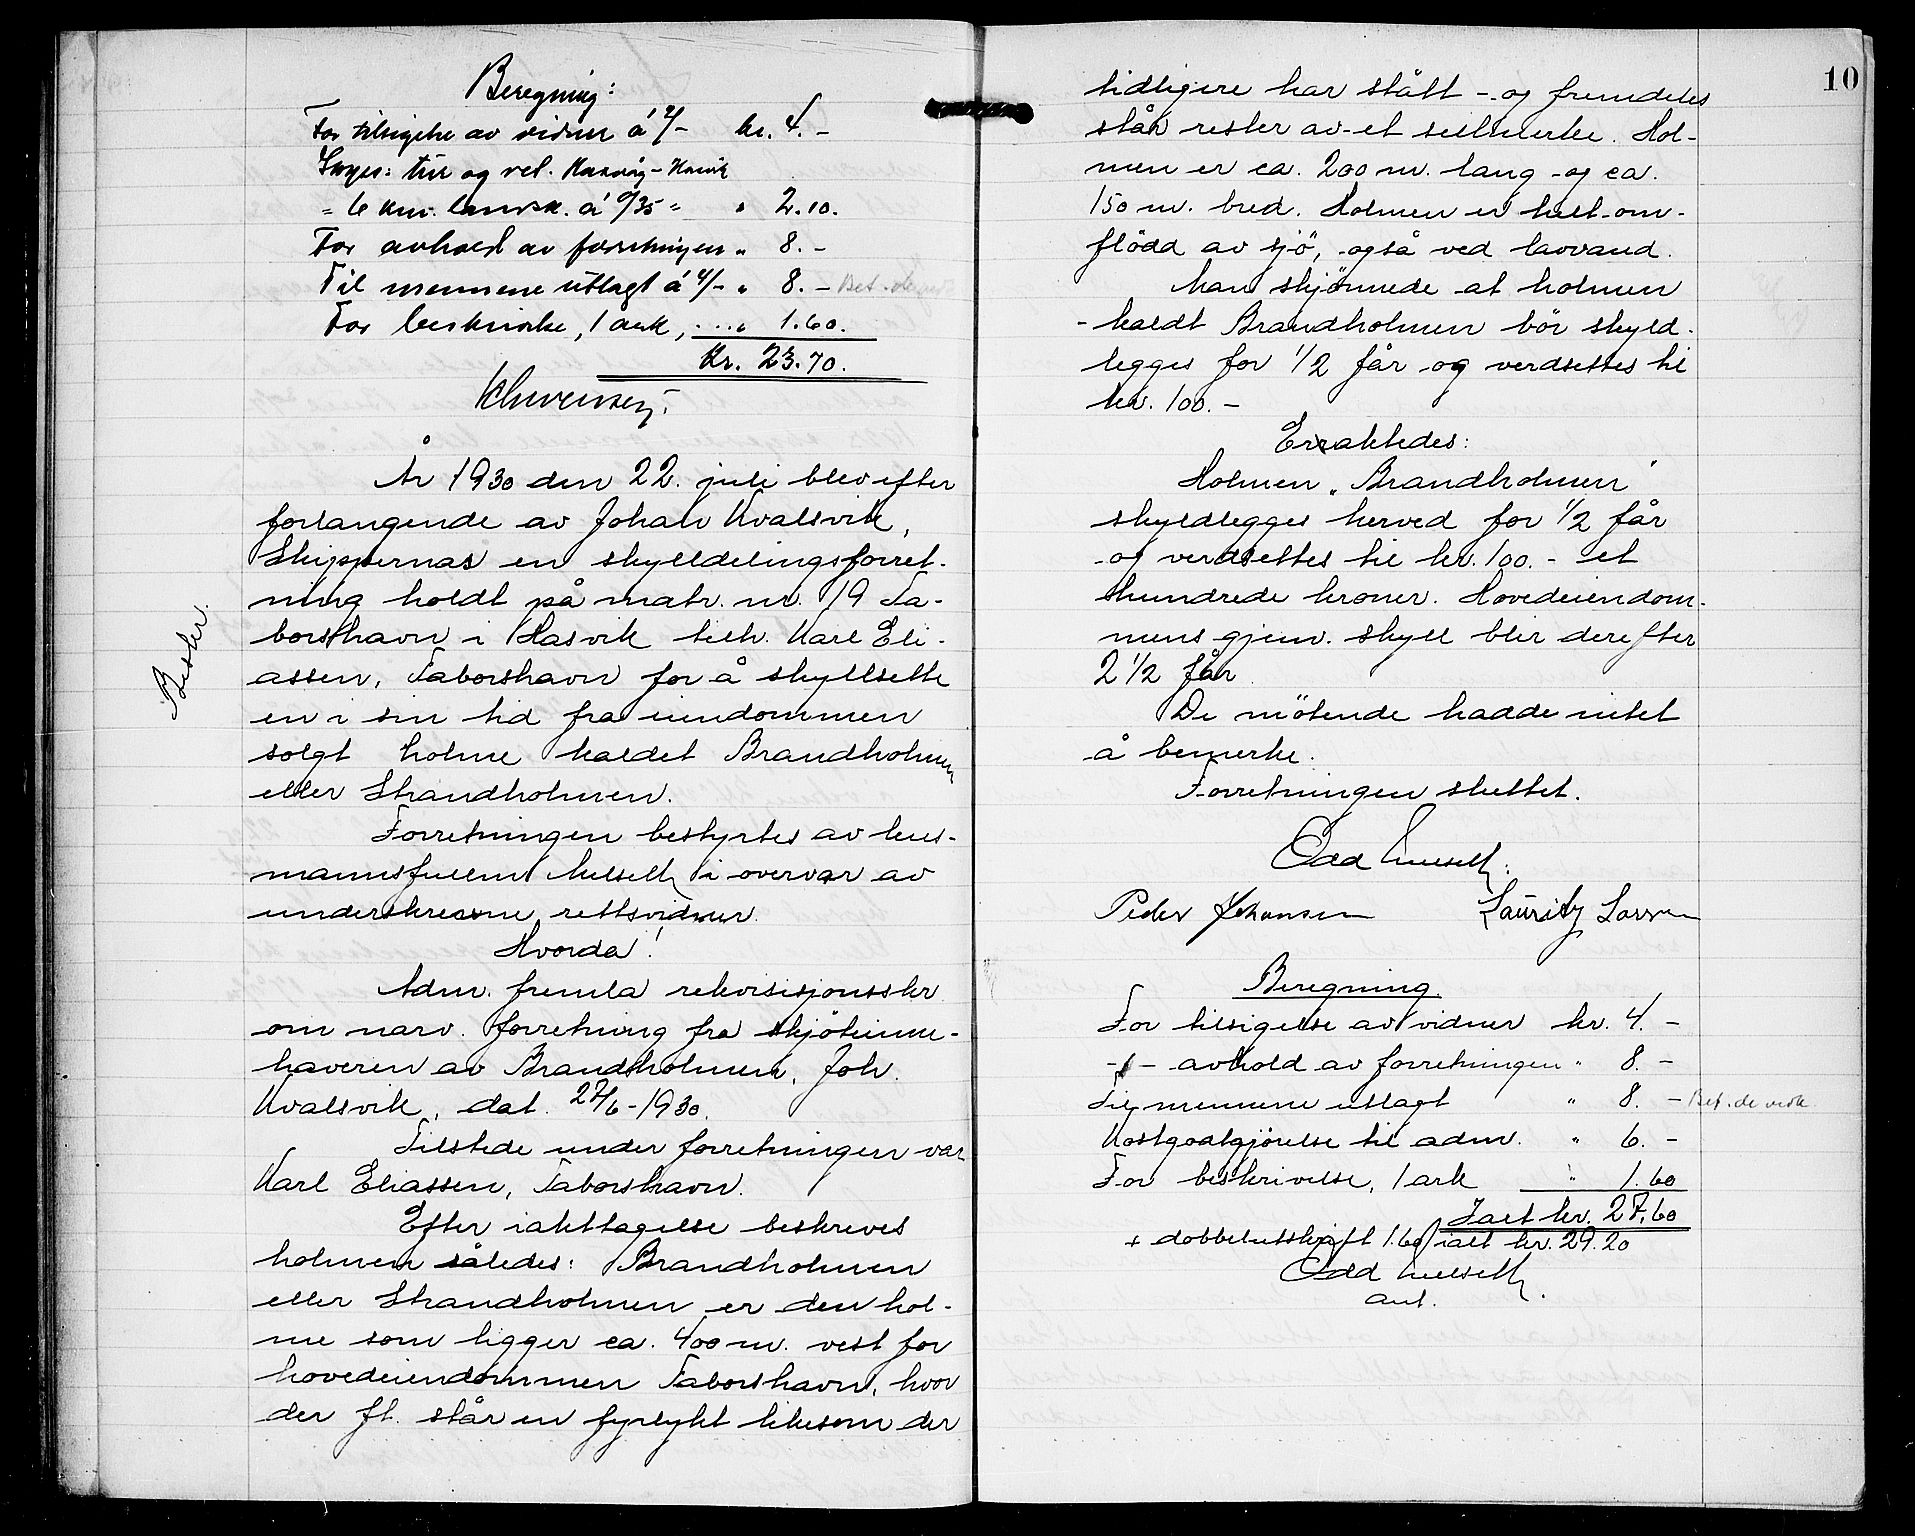 Beregning:
For tilsigelse av vidner á 2/- kr. 4.-
Skyss: tur og ret. Hasvåg-Hasvik
" 6 km. landsk. á 0/35 " " 2.10.
For avhold av forretningen " 8.-
Til mennene utlagt á 4/- " 8.- Bet.
For beskrivelse, 1 ark, .... " 1.60.
Kr. 23.70.
År 1930 den 22. juli blev efter
forlangende av Johan Kvalsvik,
Skippernas en skylldelingsforret-
ning holdt på matr. nr. 19 Ta-
borshavn i Hasvik tilh. Karl Eli-
assen, Taborshavn for å skyllsette
en i sin tid fra eiendommen
solgt holme kaldet Brandholmen
eller Strandholmen.
Forretningen bestyrtes av lens-
mannsfullm. Melseth i overvær av
underskrevne rettsvidner.
Hvorda!
Adm. fremla rekvisisjonsskr
om nærv. forretning fra skjöteinne-
haveren av Brandsholmen, Joh.
Kvalsvik, dat. 27/6-1930.
Tilstede under forretningen var
Karl Eliassen, Taborshavn.
Efter iakttagelse beskrives
holmen således: Brandholmen
eller Strandholmen er den hol-
me som ligger ca. 400 m. vest for
hovedeiendommen Taborshavn, hvor
der ft. står en fyrlykt likesom der
10
tidligere har stått - og fremdeles
står rester av - et seilmerke. Hol-
men er ca. 200 m. lang - og ca.
150 m. bred. Holmen er helt om-
flödd av sjö, også ved lavvand.
Man skjönnede at holmen
- kaldt Brandholmen bör skyld-
legges for 1/2 får og verdsettes til
kr. 100.-
Erraktedes:
Holmen "Brandholmen"
skyldlegges herved for 1/2 får
- og verdsettes til kr. 100.- et
hundrede kroner. Hovedeiendom-
mens gjenv. skyll blir derefter
2 1/2 får.
De mötende hadde intet
å bemerke.
Forretningen sluttet.
Odd Melseth.
Peder Johansen Lauritz Larsen
Beregning.
For tilsigelse av vidner kr. 4.-
-"- avhold av forretningen " 8.-
Til mennene utlagt " 8.- Bet. de vedk
Kostgodtgjörelse til adm. " 6.-
For beskrivelse, 1 ark " 1.60
Ialt kr. 27.60
+ dobbelutskrift 1.60 ialt kr. 29.20
Odd Melseth.
ant.